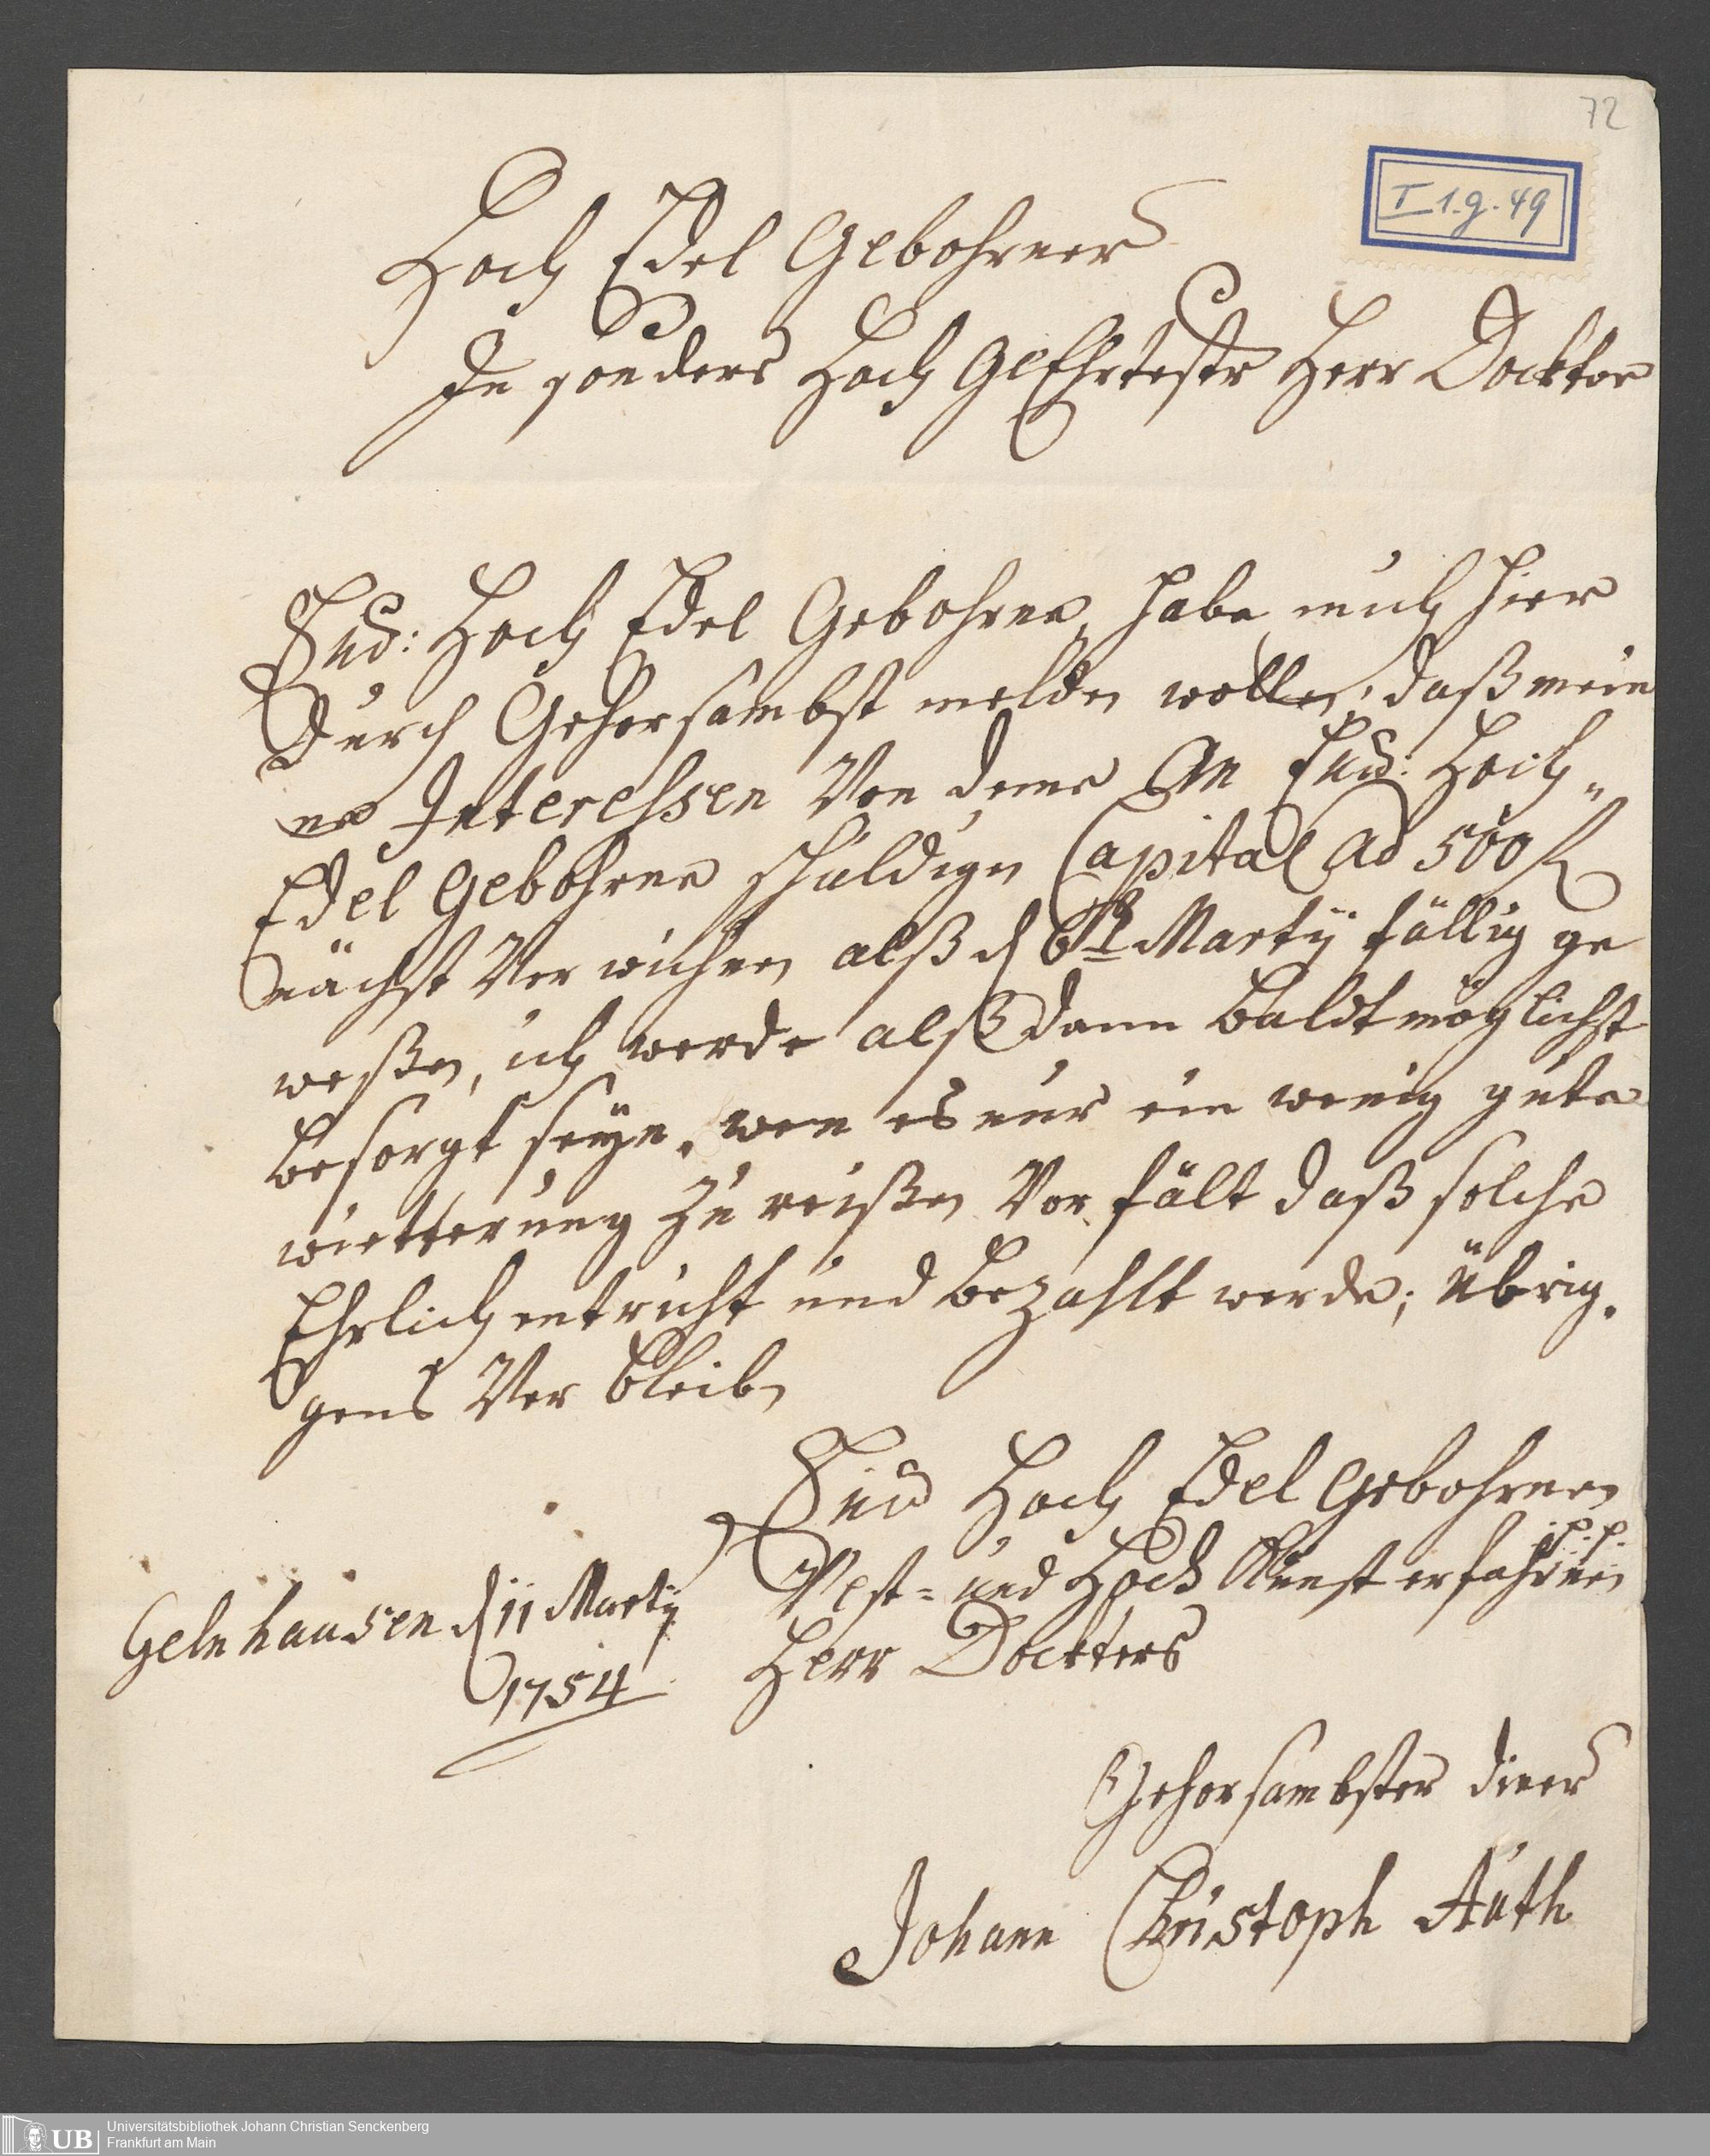 72
I 1.g.49
Hoch Edel Gebohrner
In sonders Hoch GeEhrtestr Herr Docktor
Eud: Hoch Edel Gebohrnen habe mich hier
Durch Gehorsambst melden wollen, daß mein
ne Interehsen Von deme An Eud: Hoch„
Edel Gebohrne schuldigen Capital ad 500 fl
nächst Ver wichnen alß d 6t Martÿ fällig ge
weßen, ich werde alß dann baldt möglichst
besorgt seyn. wen es nur ein wenig gute
wietterung zu reißen Vor fält daß solche
Ehrlich entricht und bezahlt werde; übrig.
gens Ver bleiben
Eud Hoch Edel Gebohrnen
Vest= und Hoch Kunst erfahrnen
p.p.
Herr Dockters
Gelnhausen d 11 Martÿ
1754
Gehorsambster diener
Johann Christoph Auth
UB Universitätsbibliothek Johann Christian Senckenberg
Frankfurt am Main